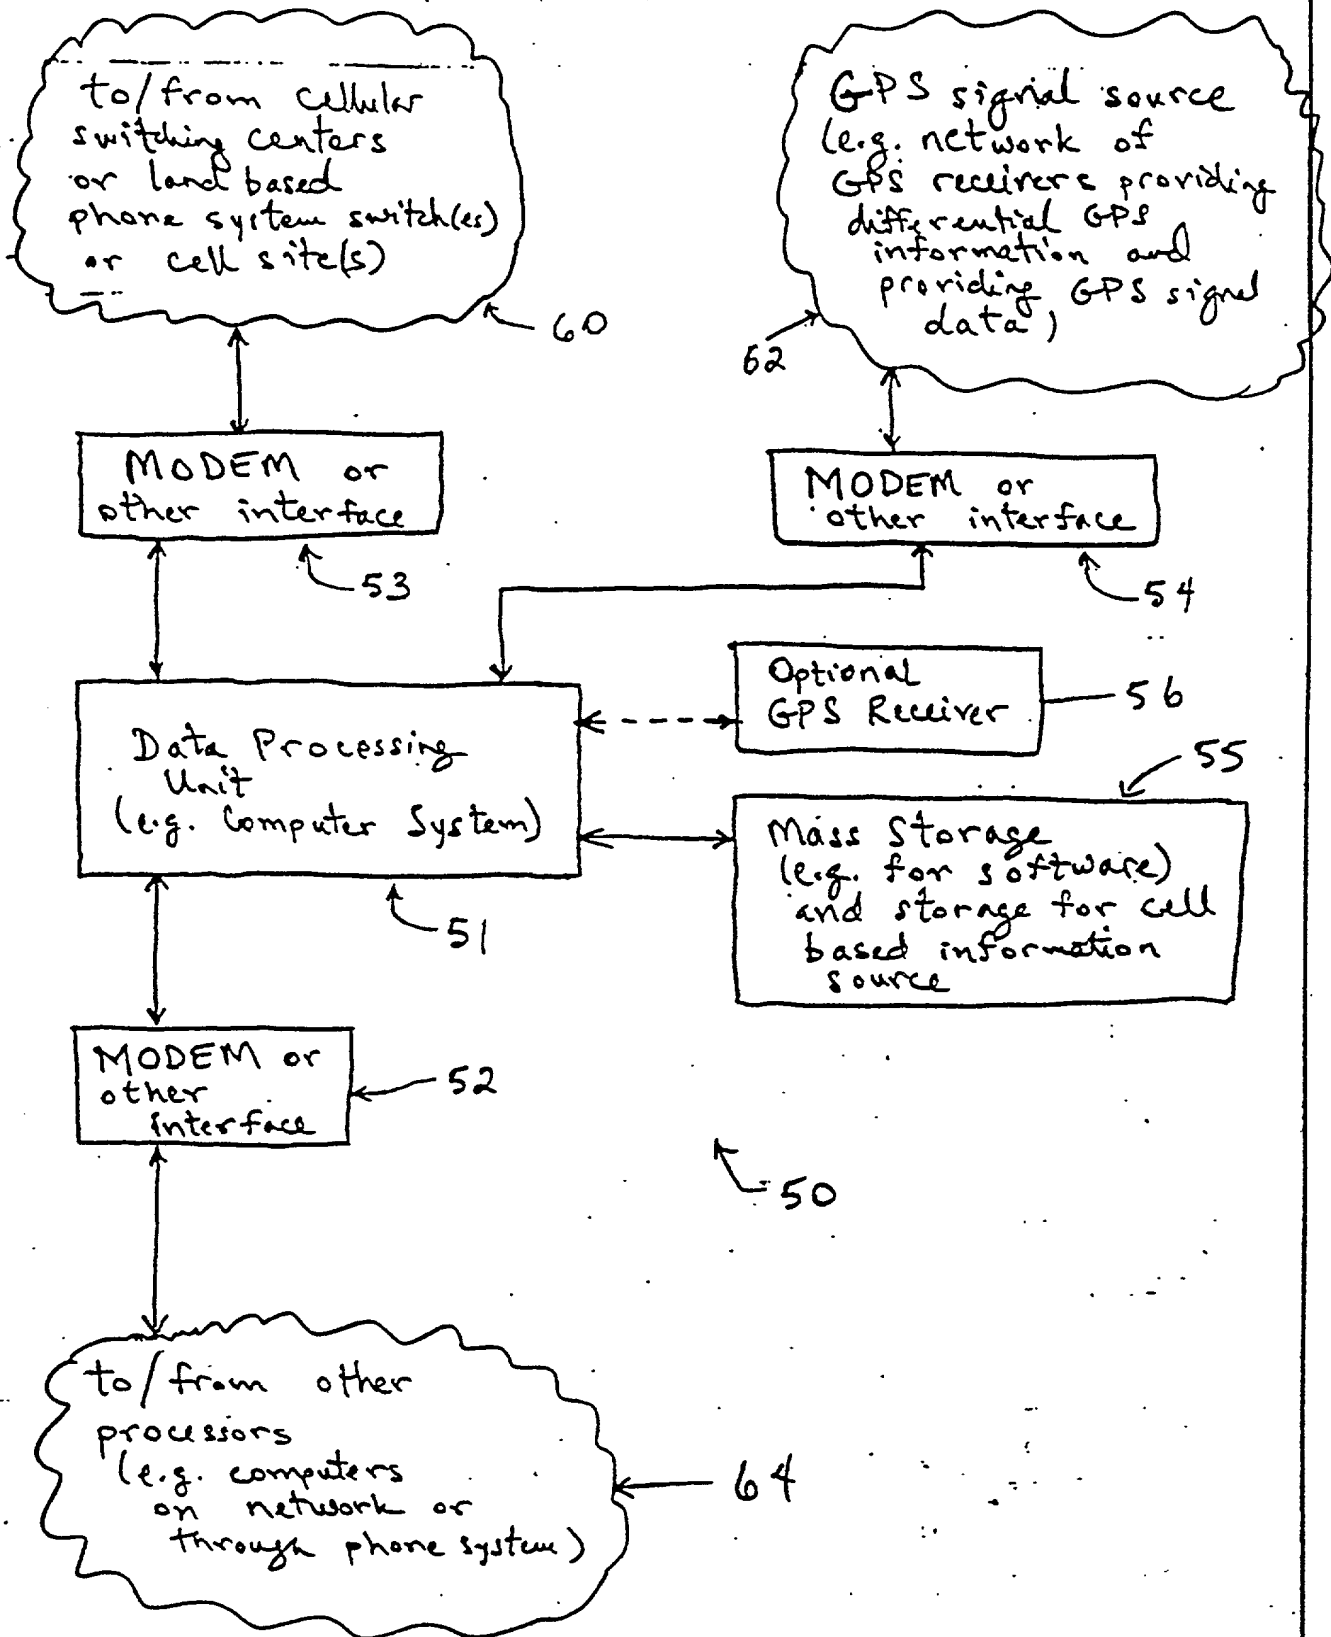 to/from cellular
switching centers
or land based
phone system switch(es)
or cell site(s)
60
GPS signal source
(e.g. network of
GPS receivers providing
differential GPS
information and
providing GPS signal
data)
62
MODEM or
other interface
53
MODEM or
other interface
54
Optional
GPS Receiver
56
Data Processing
Unit
(e.g. Computer System)
51
55
Mass Storage
(e.g. for software)
and storage for cell
based information
source
MODEM or
other
interface
52
50
to/from other
processors
(e.g. computers
on network or
through phone system)
64